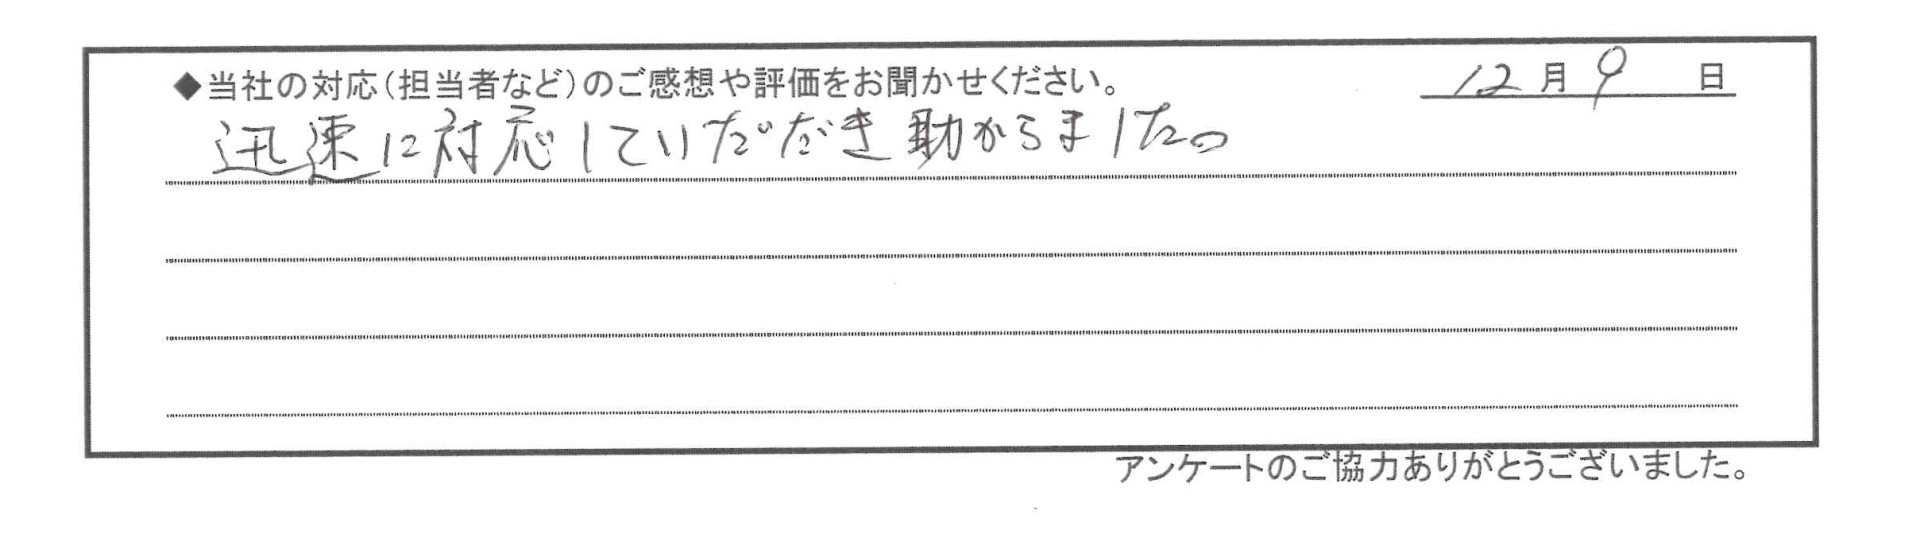 ◆当社の対応(担当者など)のご感想や評価をお聞かせください。 12月9日
迅速に対応していだだき助からました。
アンケートのご協力ありがとうございました。